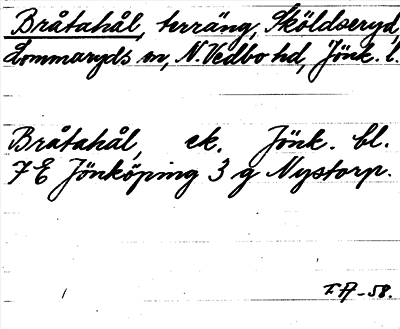 Bråtahål, terräng, Sköldseryd,
Lommaryds sn, N. Vedbo hd, Jönk. l.
Bråtahål, ek. Jönk. bl.
7E Jönköping 3 g Nystorp.
T.A-58.